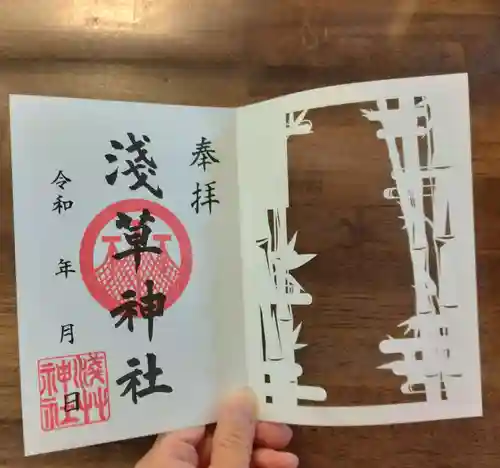 奉拝
淺草神社
令和 年 月 日
淺草
神社